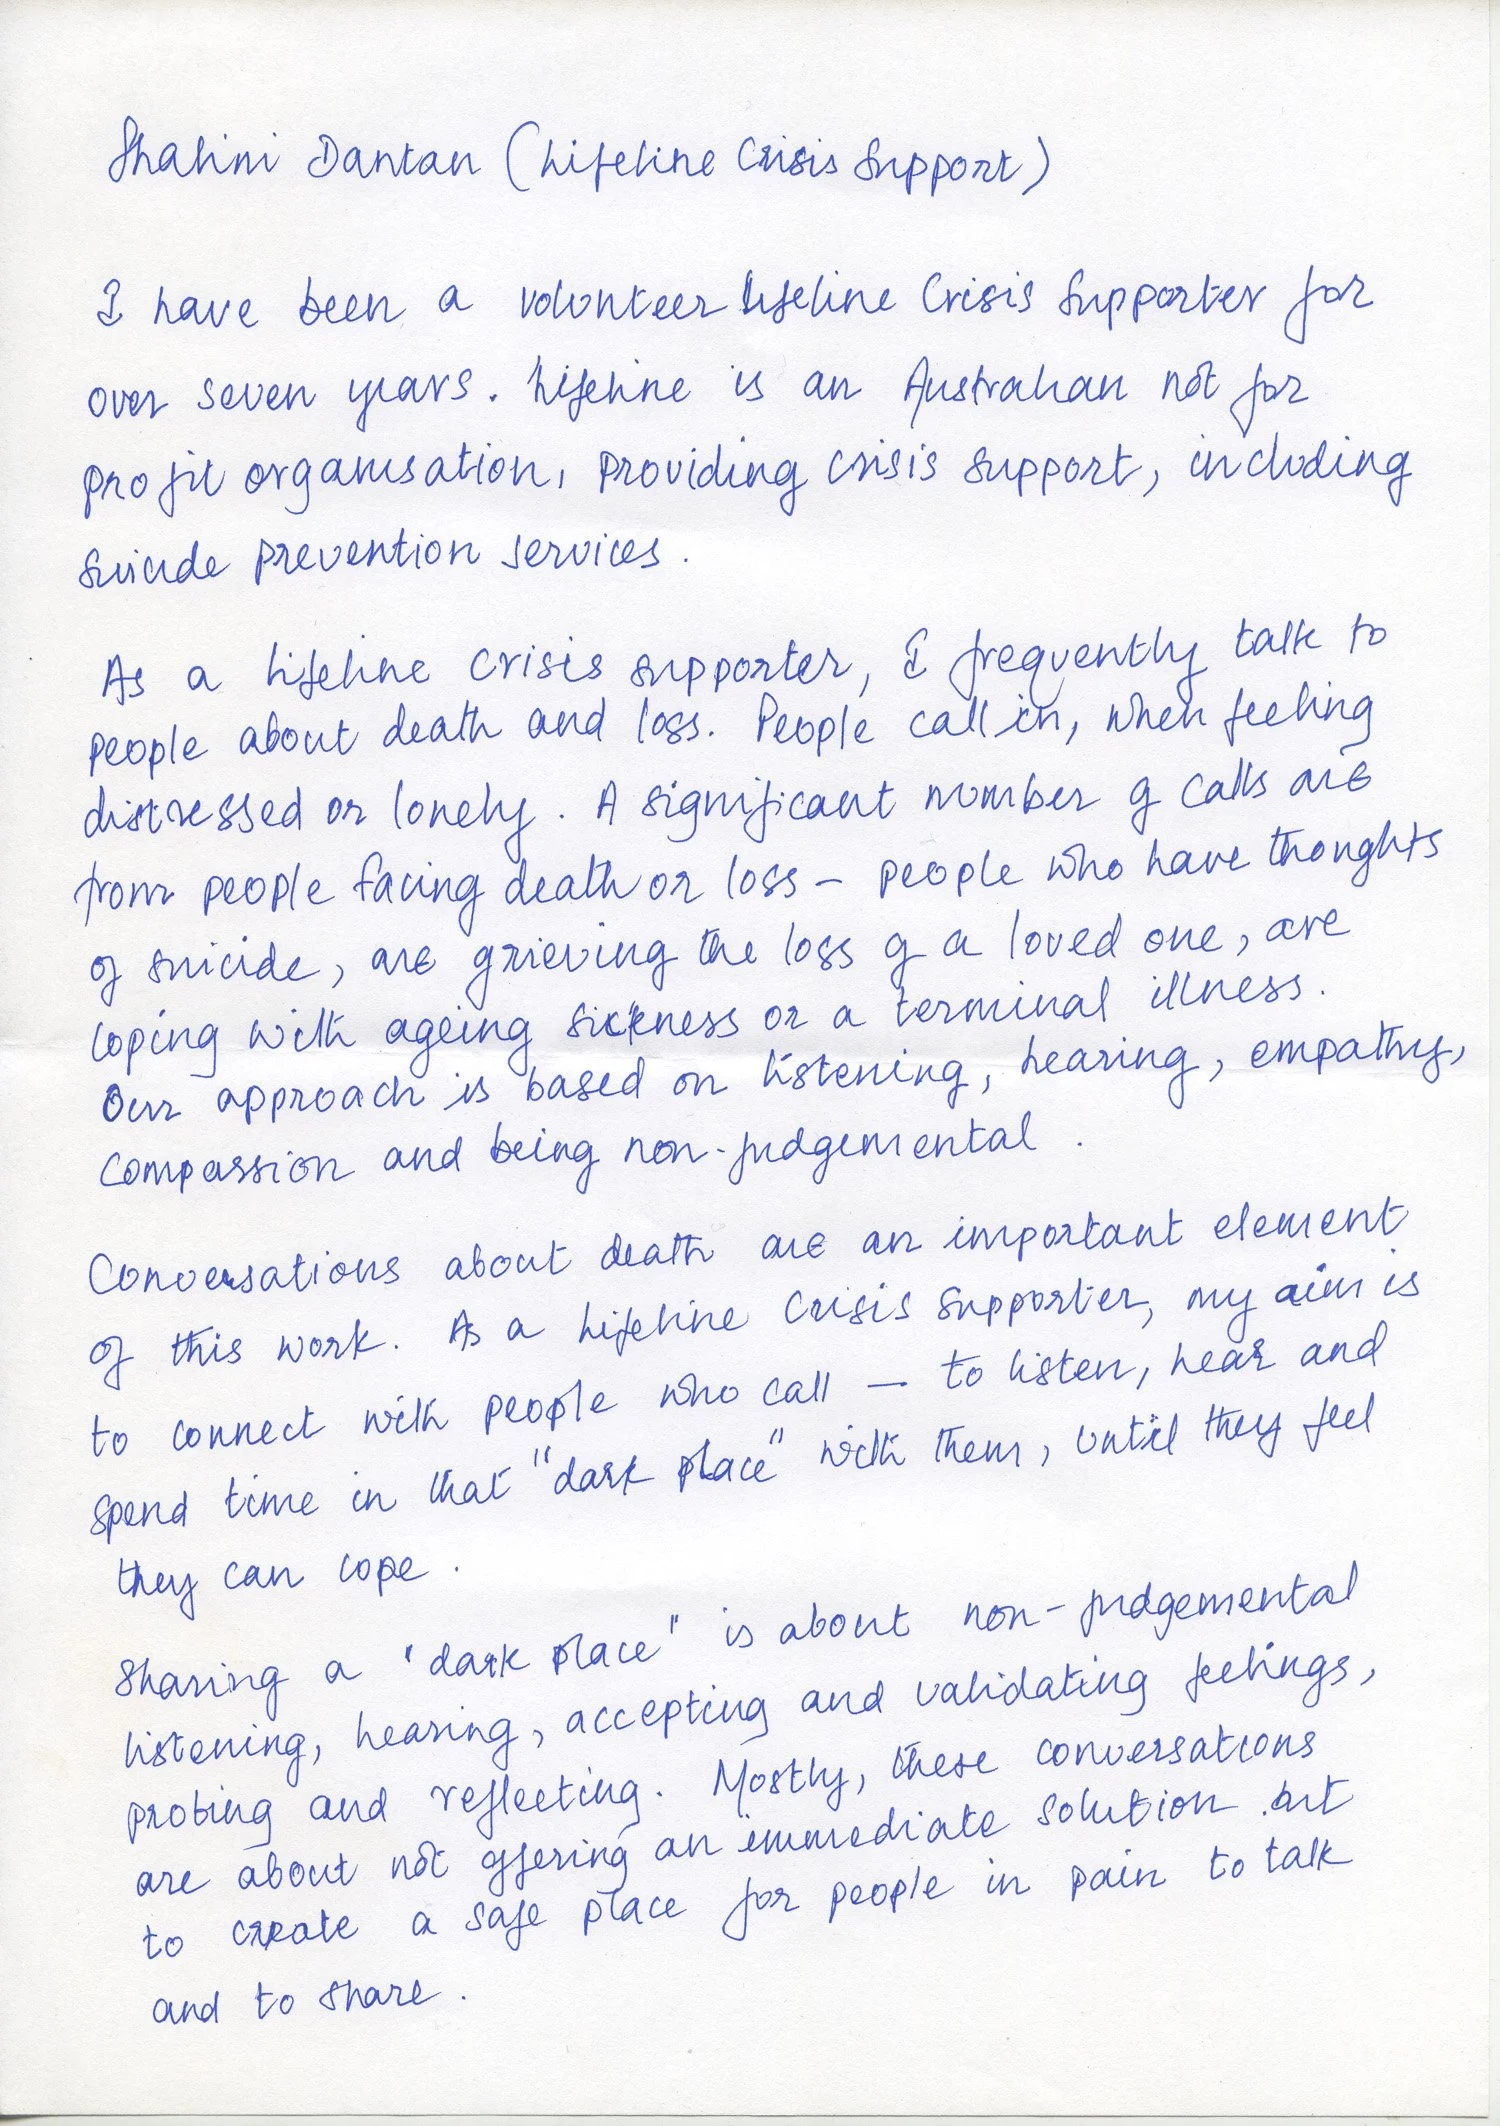 Shalini Dantan (Lifeline Crisis Support)
I have been a volunteer Lifeline Crisis Supporter for
over seven years. Lifeline is an Australian not for
profit organisation, providing crisis support, including
suicide prevention services.
As a Lifeline Crisis supporter, I frequently talk to
people about death and loss. People call in, when feeling
distressed or lonely. A significant number of calls are
from people facing death or loss – people who have thoughts
of suicide, are grieving the loss of a loved one, are
coping with ageing sickness or a terminal illness.
Our approach is based on listening, hearing, empathy,
compassion and being non-judgemental.
Conversations about death are an important element
of this work. As a Lifeline Crisis Supporter, my aim is
to connect with people who call – to listen, hear and
spend time in that "dark place" with them, until they feel
they can cope.
Sharing a "dark place" is about non-judgemental
listening, hearing, accepting and validating feelings,
probing and reflecting. Mostly, these conversations
are about not offering an immediate solution but
to create a safe place for people in pain to talk
and to share.